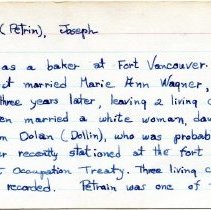 (Petrin), Joseph
as a baker at Fort Vancouver.
t married Marie Ann Wagner,
three years later, leaving 2 living c
en married a white woman, dau
m Dolan (Dollin), who was probabl
er recently stationed at the fort
t Occupation Treaty. Three living c
recorded. Petrain was one of